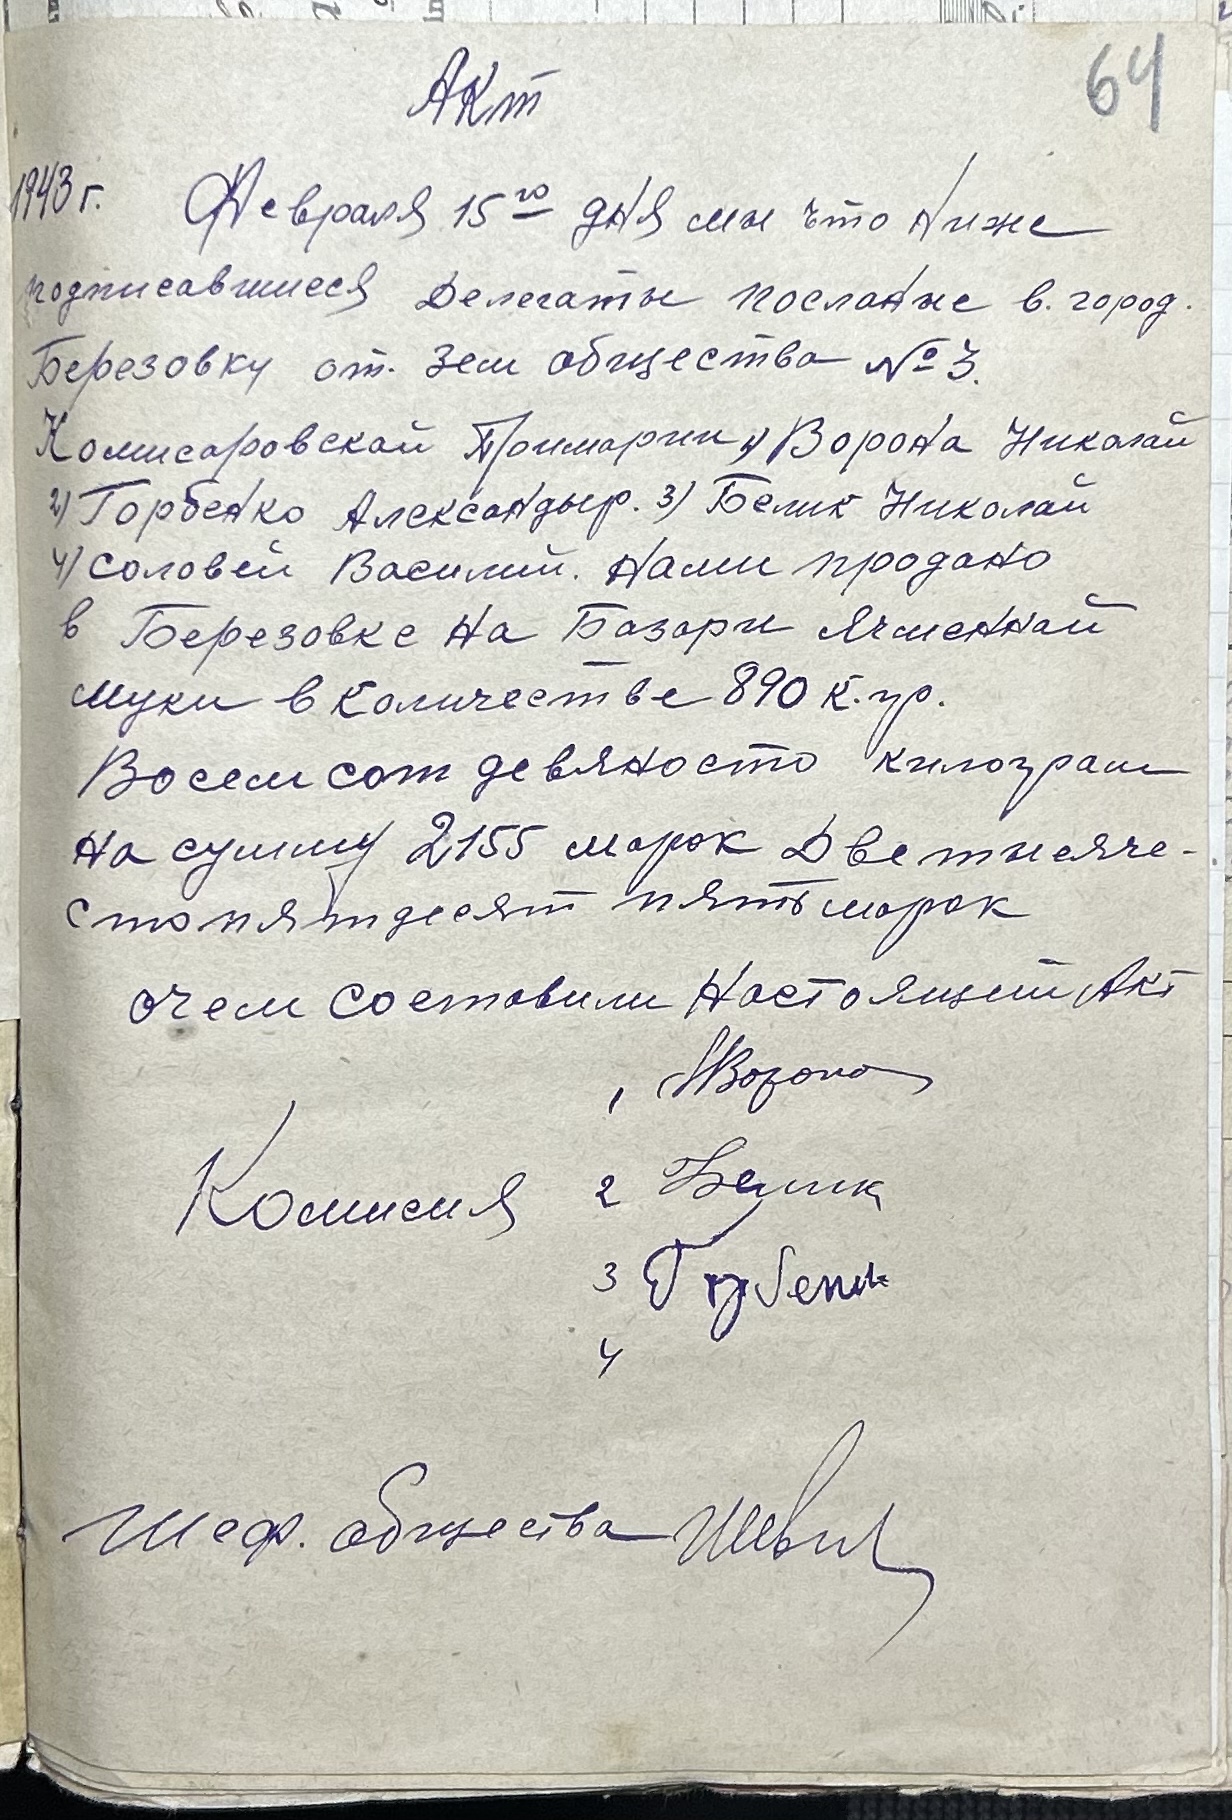 64
Акт
1943 г. Февраля 15го дня мы что ниже
подписавшиеся Делегаты посланые в. город.
Березовку от. Зем общества № 3.
Комисаровской Примарии 1) Ворона Николай
2) Горбенко Александыр. 3) Белик Николай
4) Соловей Василий. Нами продано
в Березовке на Базари ячменной
муки в количестве 890 к.гр.
Восемсот девяносто килограм
на сумму 2155 марок Две тысяче-
сто пятдесят пять марок
очем составили настоящий Акт
1, Ворона
Комисия 2 Белик
3 Горбенк
4
Шеф. общества